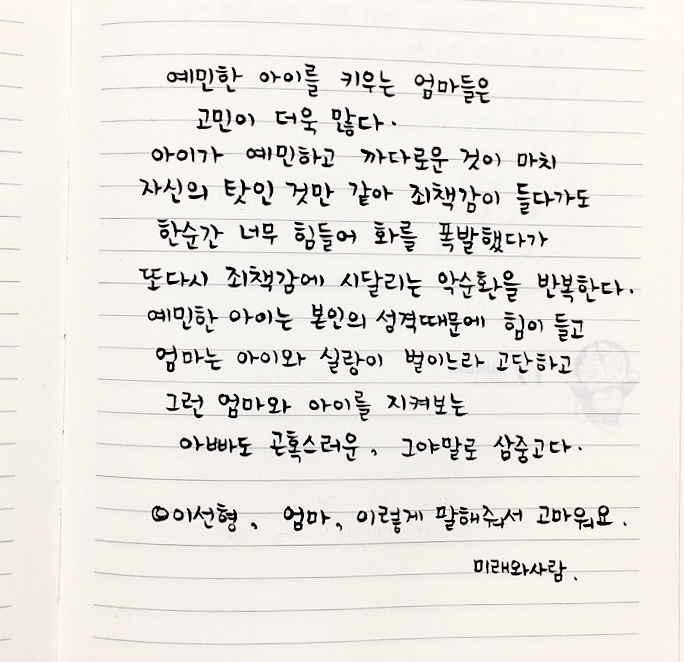 예민한 아이를 키우는 엄마들은
고민이 더욱 많다.
아이가 예민하고 까다로운 것이 마치
자신의 탓인 것만 같아 죄책감이 들다가도
한순간 너무 힘들어 화를 폭발했다가
또다시 죄책감에 시달리는 악순환을 반복한다.
예민한 아이는 본인의 성격때문에 힘이 들고
엄마는 아이와 실랑이 벌이느라 고단하고
그런 엄마와 아이를 지켜보는
아빠도 곤혹스러운, 그야말로 삼중고다.
©이선형, 엄마, 이렇게 말해줘서 고마워요.
미래와사람.